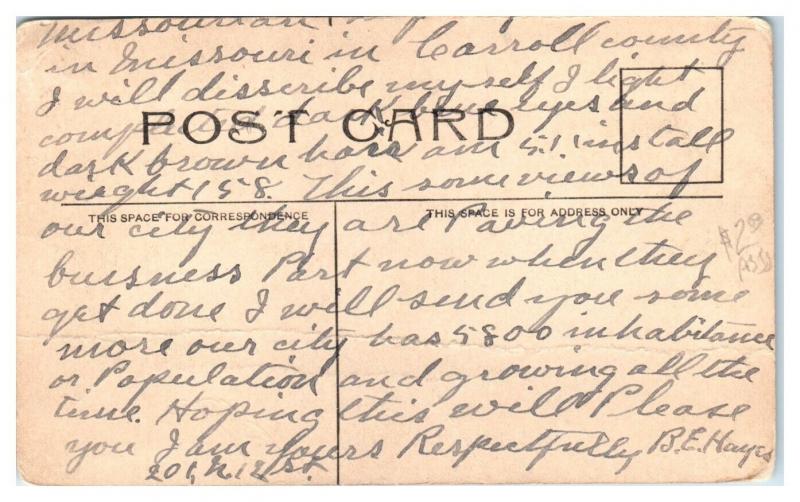 Missourian
in Missouri in Carroll county
I will disscribe my self I light
complected dark blue eyes and
POST CARD
dark brown hair am 5.11 in stall
wieght 158. This some views of
THIS SPACE FOR CORRESPONDENCE
THIS SPACE IS FOR ADDRESS ONLY
our city they are Paving the
buisness Part now when they
get done I will send you some
more our city has 5800 inhabitance
or Population and growing all the
time. Hoping this will Please
you I am Yours Respectfully B.E. Hayes
201, N. 12 St.
$2.00